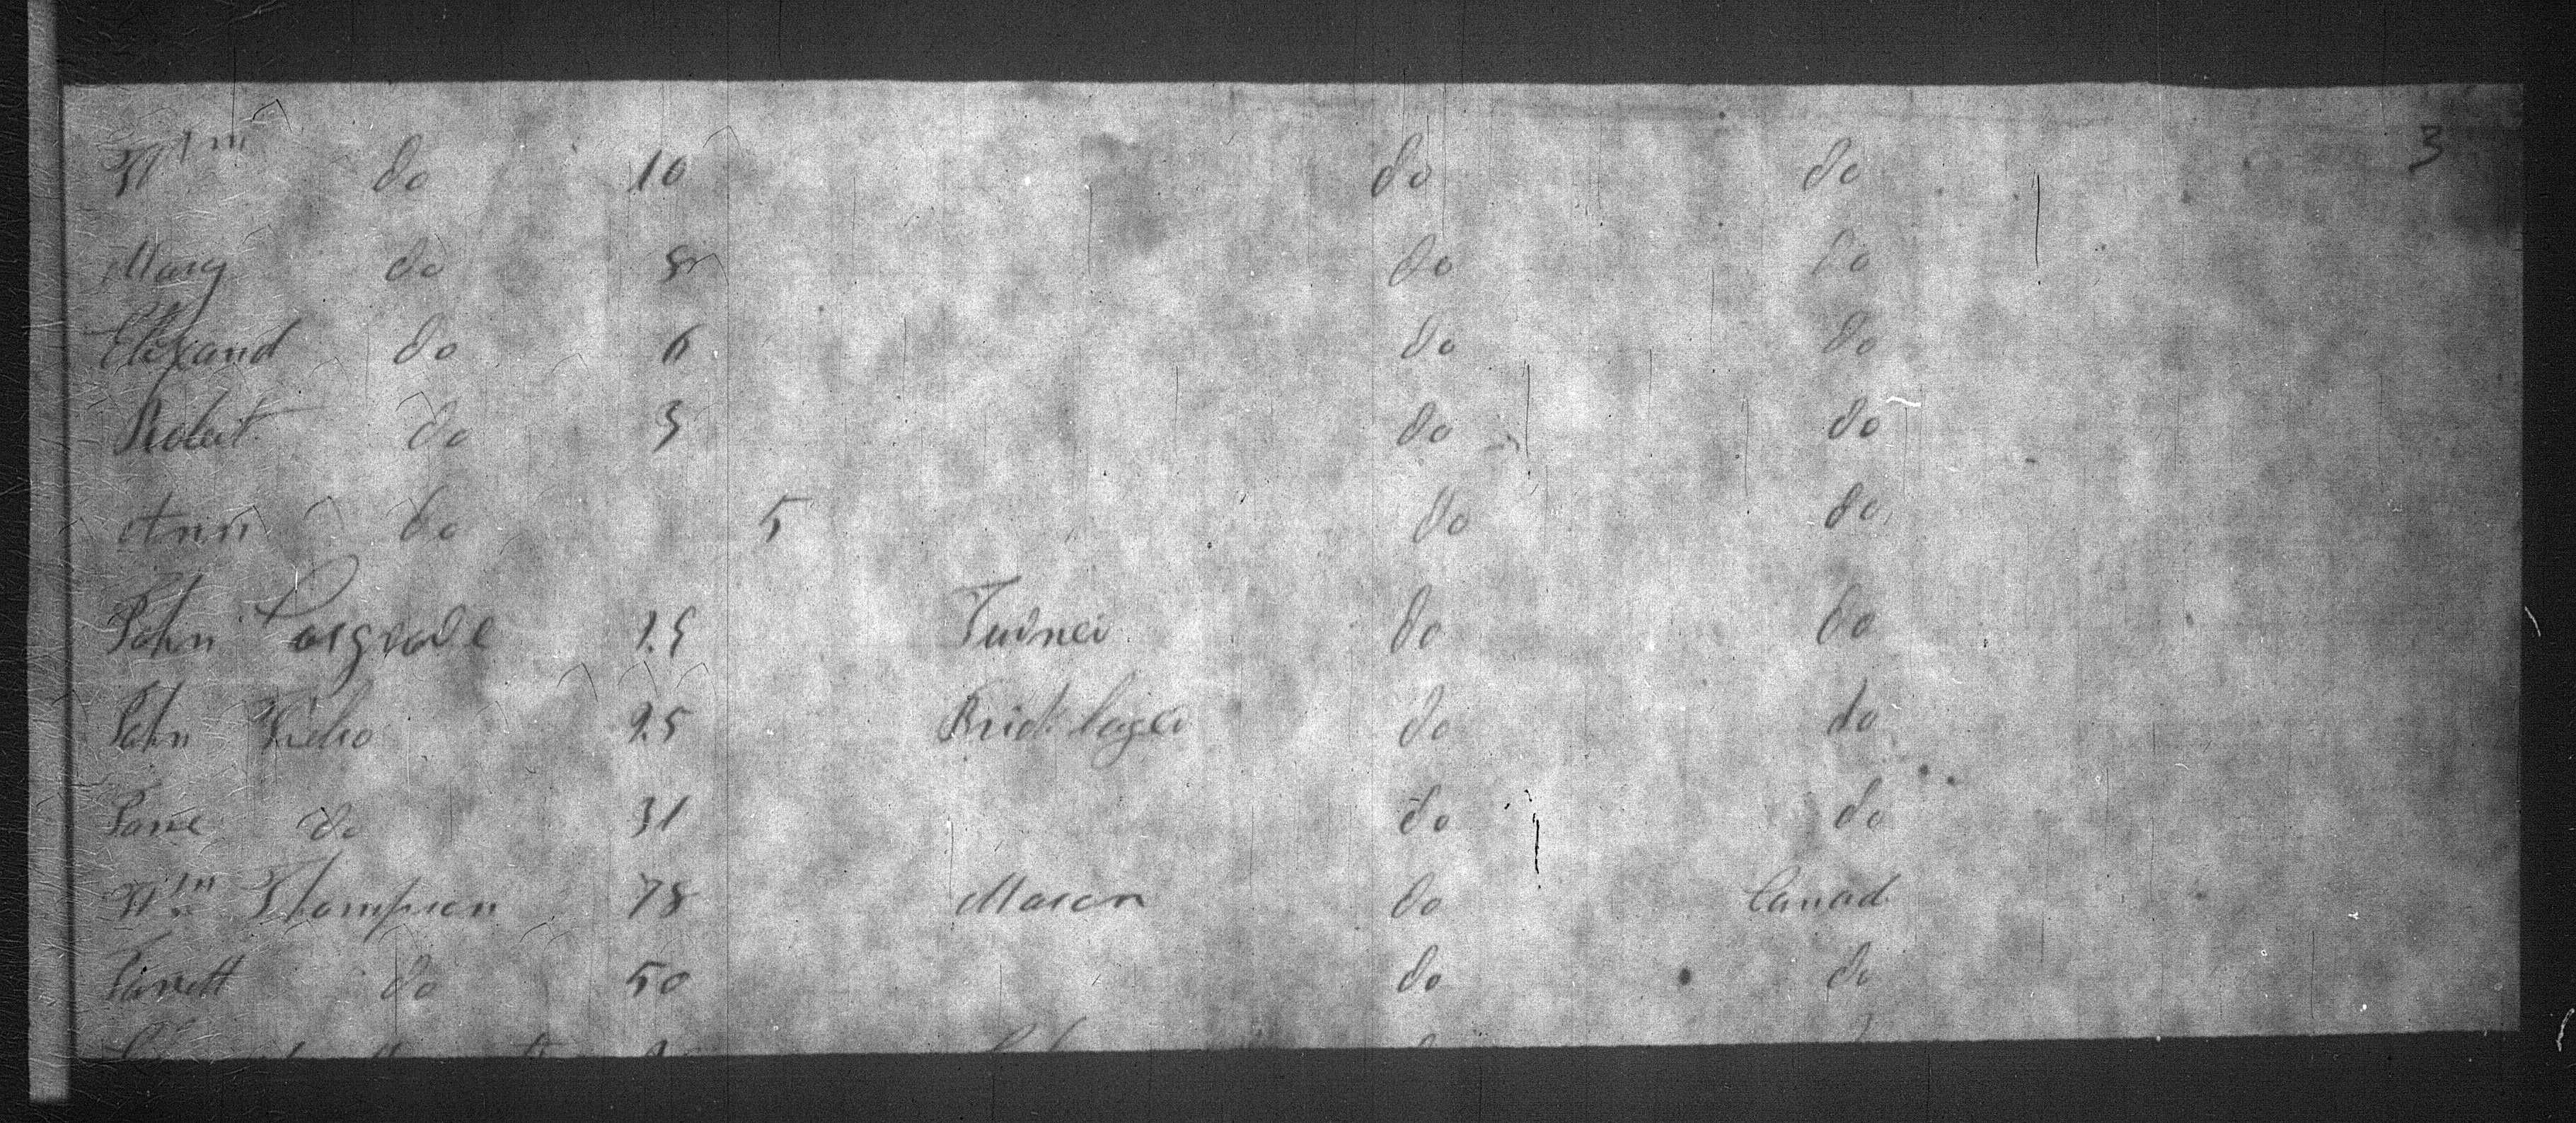 3
Wm do 10 do do
Mary do 8 do do
Elexand do 6 do do
Robert do 3 do do
Ann do 5 do do
John 25 Turner do do
John 25 Brick layer do do
Jane do 31 do do
Wm Thompson 78 Mason do Canad
Janett do 50 do do